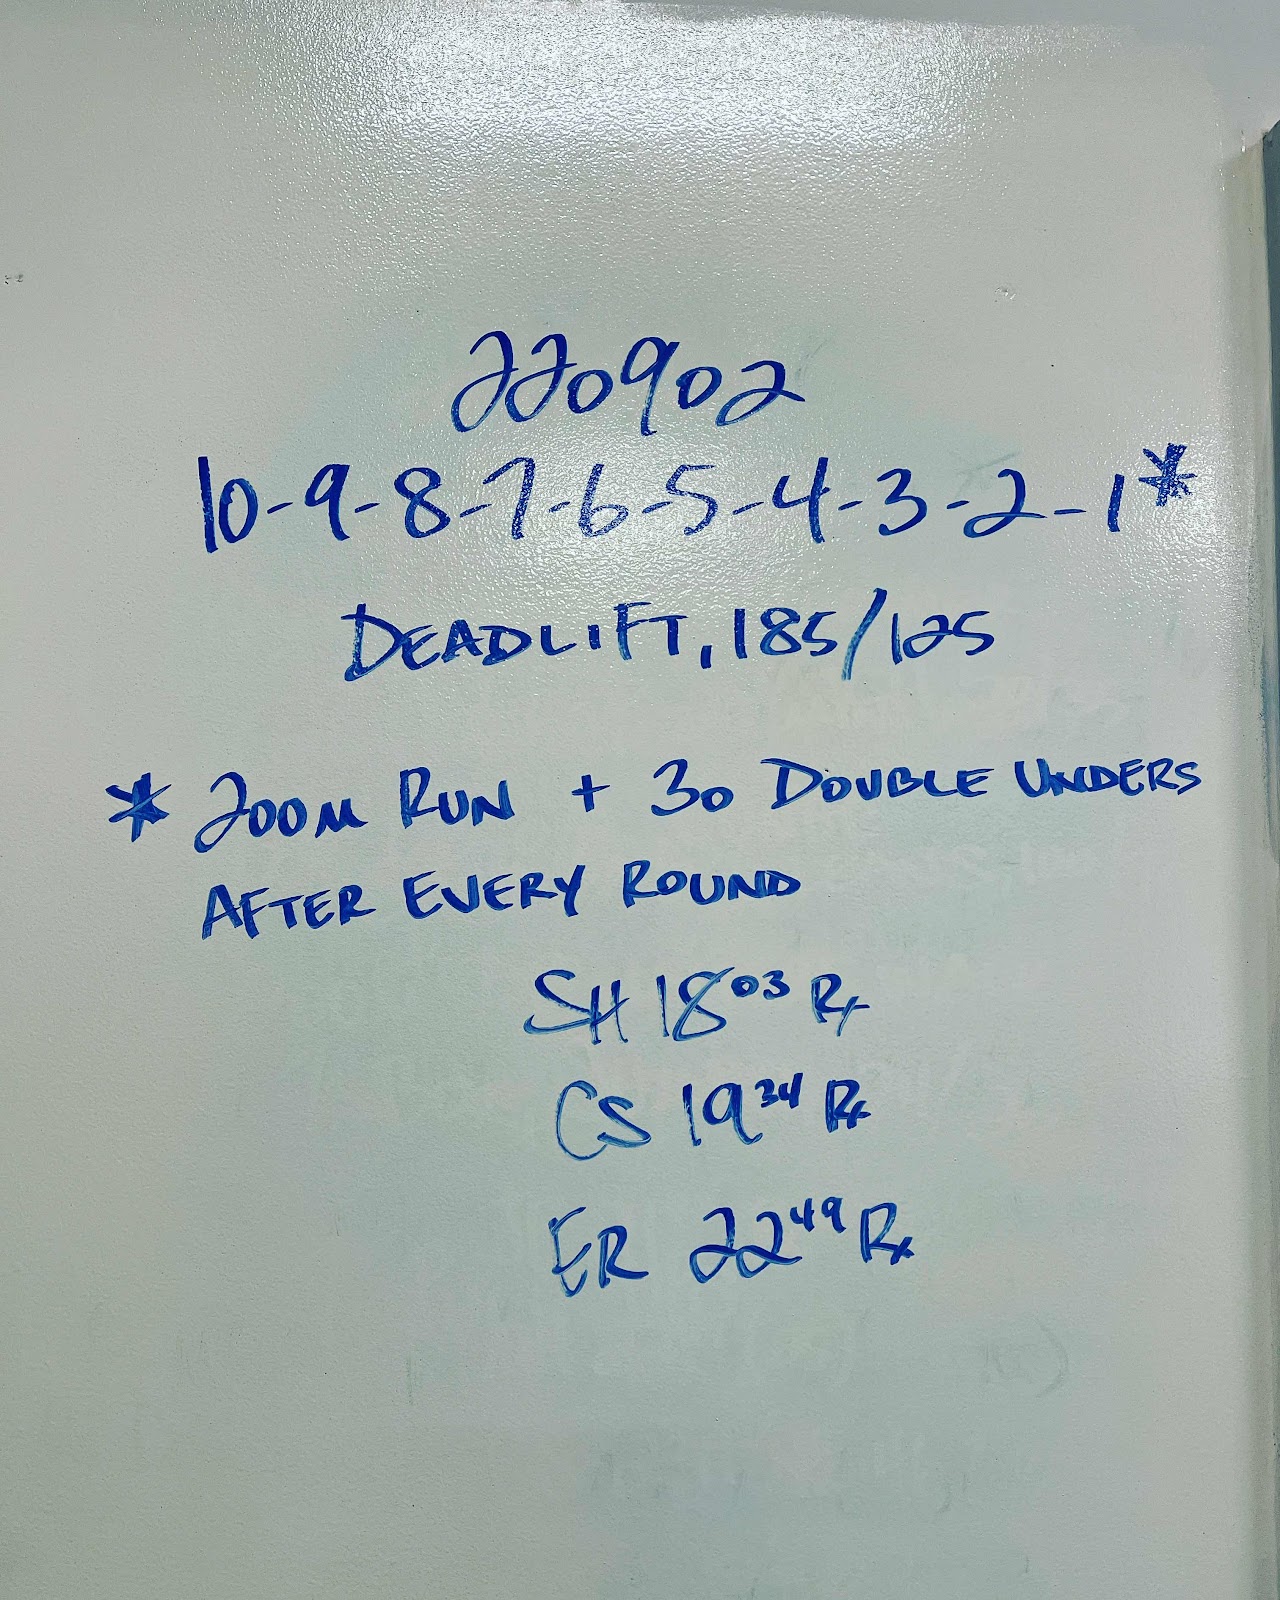 220902
10-9-8-7-6-5-4-3-2-1*
DEADLIFT, 185/125
* 200M RUN + 30 DOUBLE UNDERS
AFTER EVERY ROUND
SH 18⁰³ Rx
CS 19³⁴ Rx
ER 22⁴⁹ Rx